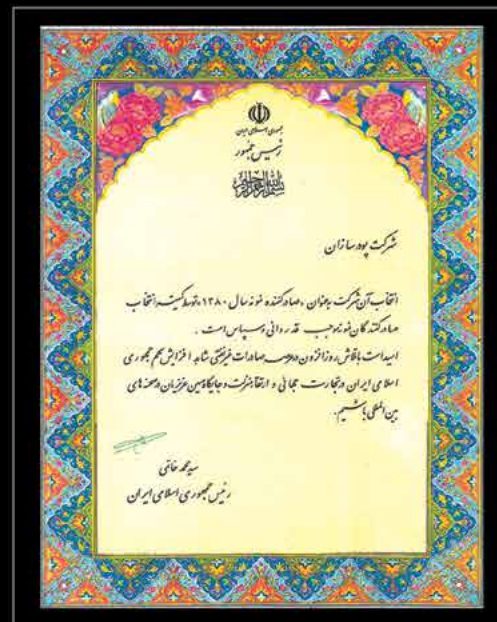 جمهوری اسلامی ایران
رئیس جمهور
بسم الله الرحمن الرحیم
شرکت پودر سازان
انتخاب آن شرکت بعنوان «صادرکننده نمونه سال ۱۳۸۰» توسط کمیته انتخاب
صادرکنندگان نمونه موجب قدردانی و سپاس است .
امید است با تلاش روزافزون در عرصه صادرات غیرنفتی شاهد افزایش سهم جمهوری
اسلامی ایران در تجارت جهانی و ارتقاء منزلت و جایگاه میهن عزیزمان در صحنه های
بین المللی باشیم.
سید محمد خاتمی
رئیس جمهوری اسلامی ایران